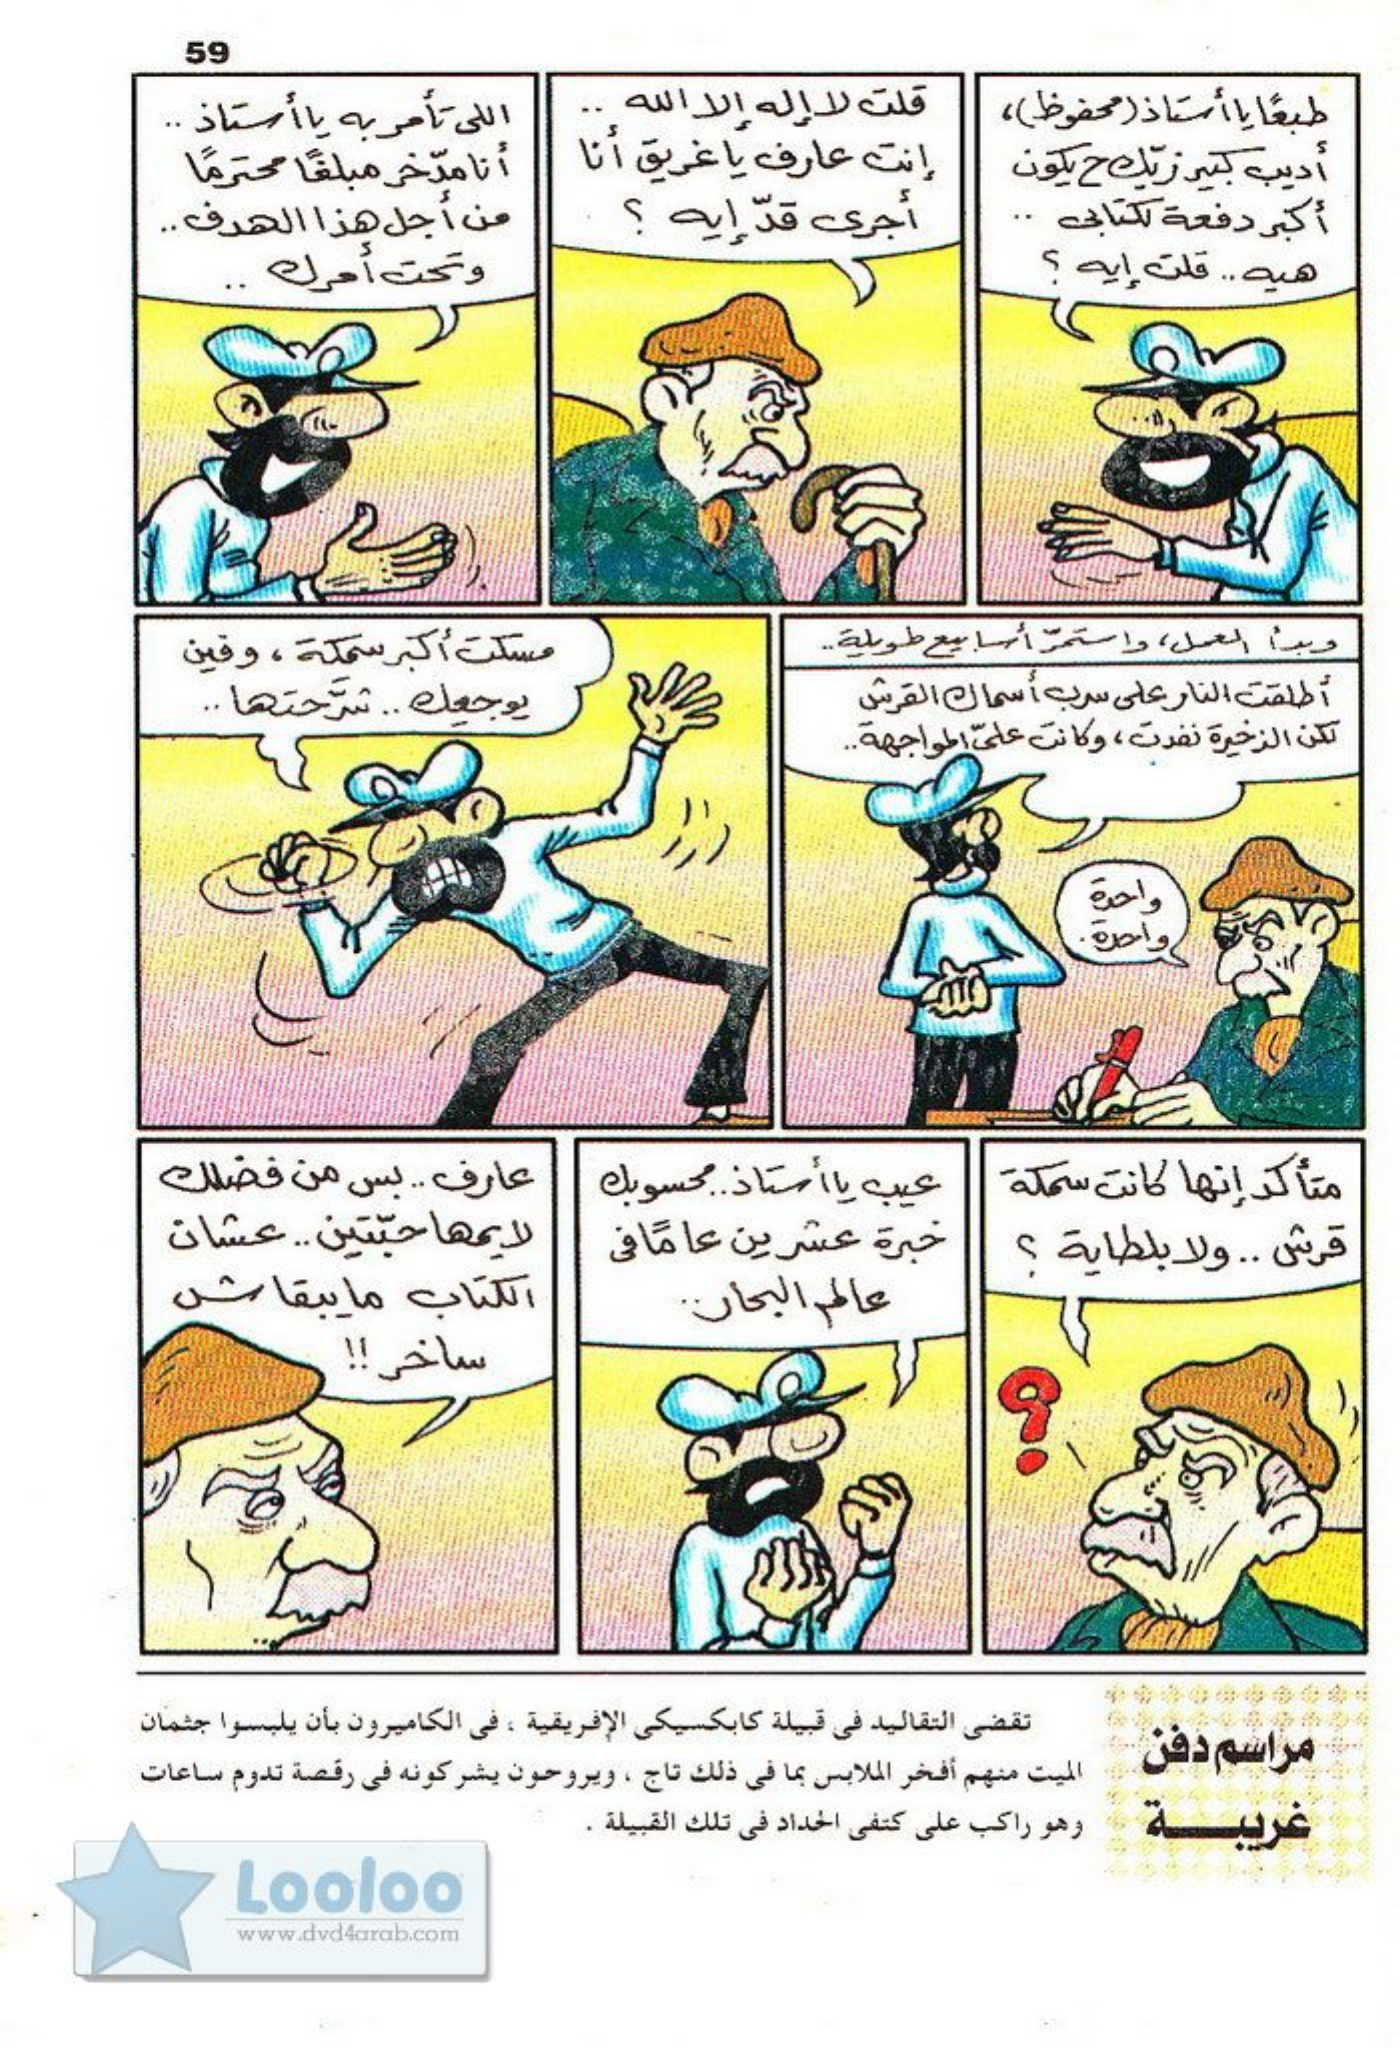 59
طبعًا يا أستاذ (محفوظ)،
أديب كبير زيّك ح يكون
أكبر دفعة لكتابى ..
هيه .. قلت إيه ؟
قلت لا إله إلا الله ..
إنت عارف يا غريق أنا
أجرى قدّ إيه ؟
اللى تأمر به يا أستاذ ..
أنا مدّخر مبلغًا محترمًا
من أجل هذا الهدف ..
وتحت أمرك ..
وبدأ العمل، واستمرّ أسابيع طويلة..
أطلقت النار على سرب أسماك القرش
لكن الذخيرة نفدت، وكانت علىّ المواجهة..
واحدة
واحدة.
مسكت أكبر سمكة، وفين
يوجعك .. شرّحتها ..
متأكد إنها كانت سمكة
قرش .. ولا بلطاية ؟
عيب يا أستاذ.. محسوبك
خبرة عشرين عامًا فى
عالم البحار..
عارف .. بس من فضلك
لايمها حبّتين .. عشان
الكتاب مايبقاش
ساخر !!
مراسم دفن
غريبـــة
تقضى التقاليد فى قبيلة كابكسيكى الإفريقية ، فى الكاميرون بأن يلبسوا جثمان
الميت منهم أفخر الملابس بما فى ذلك تاج ، ويروحون يشركونه فى رقصة تدوم ساعات
وهو راكب على كتفى الحداد فى تلك القبيلة .
Looloo
www.dvd4arab.com